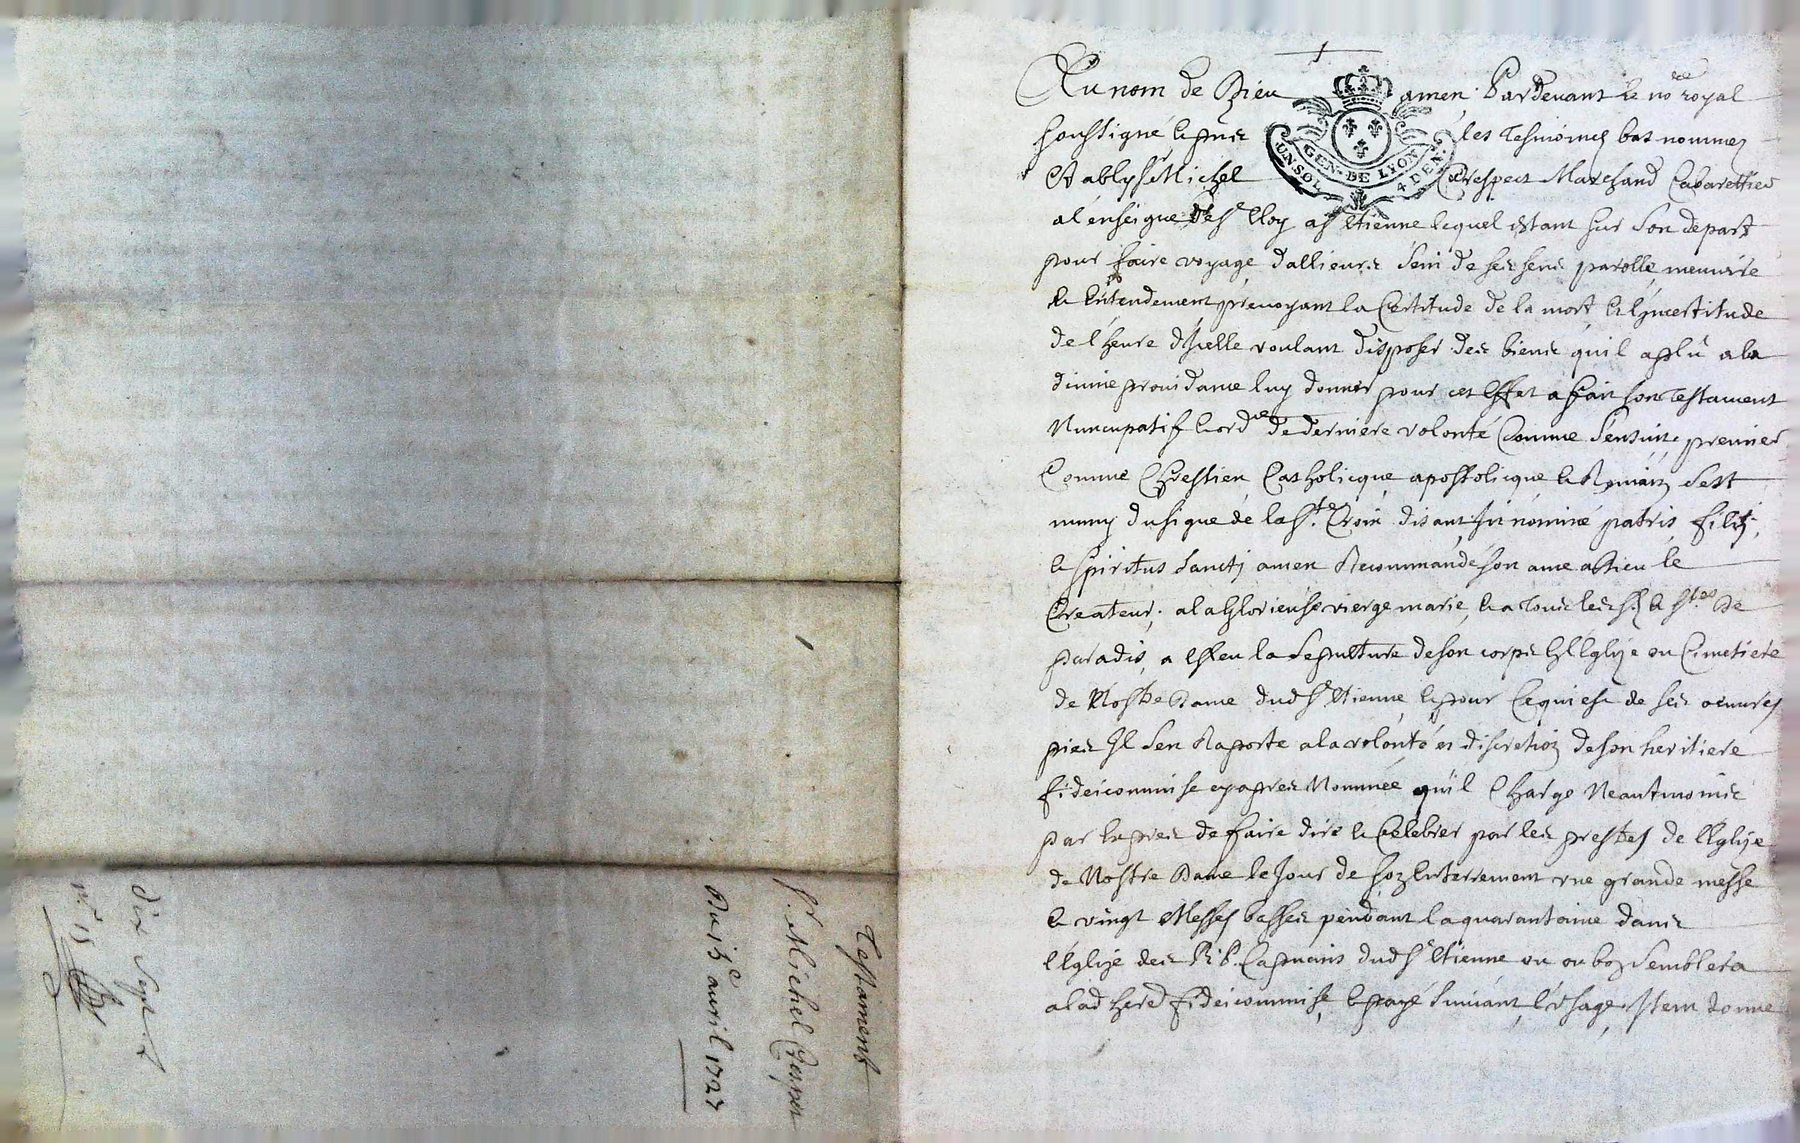 Testament
Sr. Michel Crespet
Du 15e avril 1727
dix sept
n° 15
Au nom de Dieu amen Pardevant le nore royal
soussigné et les tesmoings bas nommez
Estably sr Michel Crespet Marchand Cabarettier
a l'enseigne de st Eloy a st Etienne lequel estant sur son depart
pour faire voyage d'allieurs sein de ses sens parolle memoire
et entendement prevoyant la Certitude de la mort et l'Incertitude
de l'heure d'Icelle voulant disposer des biens qu'il a plû a la
divine providance luy donner pour cet effet a fait son Testament
Nuncupatif et ordce de derniere volonté Comme s'ensuit, premier
Comme Chrestien Catholicque apostolicque et Romain s'est
muny du signe de la Ste Croix disant In nominé patris filij
et spiritus sancti amen Recommandé son ame a Dieu le
Createur, a la Glorieuse vierge marie, et a tous les sts et stes de
paradis, a esleu la sepulture de son corps En l'Eglize ou Cimetiere
de Nostre Dame dud st Etienne, et pour Ce qui est de ses oeuvres
pies Il s'en Raporte a la volonté et discretion de son heritiere
fideicommise cy apres Nommée qu'il Charge Neantmoins
par Exprés de faire dire et Celebrer par les prestres de l'Eglize
de Nostre Dame le Jour de son Enterrement une grande messe
et vingt Messes basses pendant la quarantaine dans
l'Eglize des R.P. Capucins dud st Etienne ou ou bon semblera
a lad hered fideicommise, et payé suivant l'Usage, Item donne